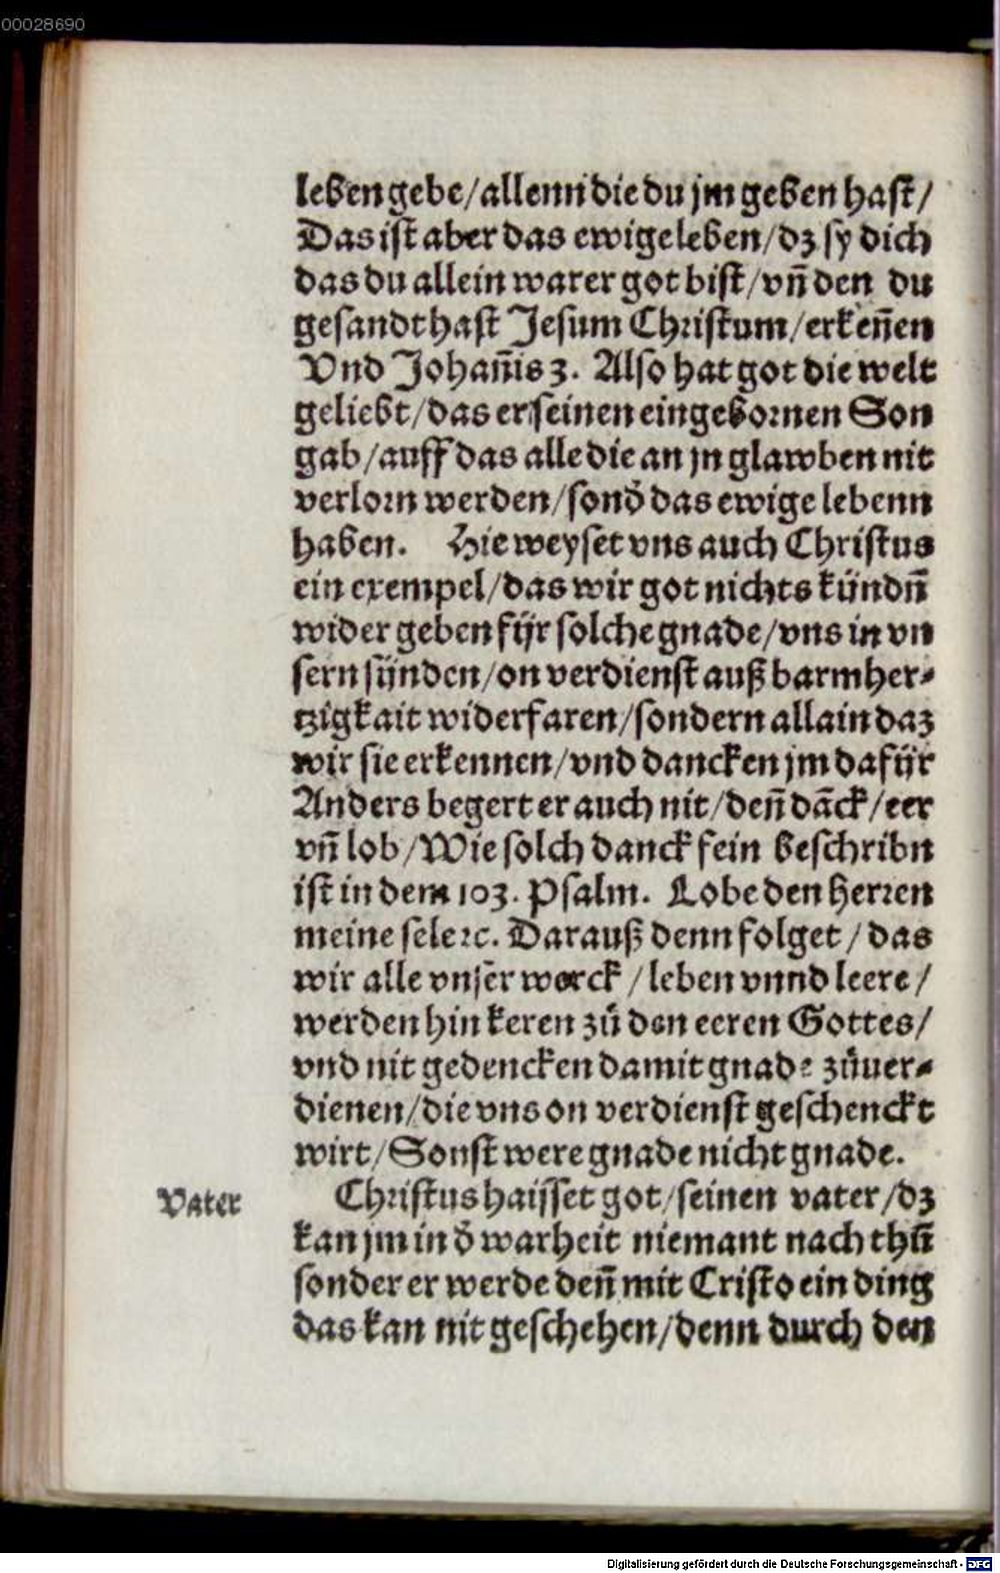 00028690
leben gebe/allenn die du jm geben hast/
Das ist aber das ewige leben/dz sy dich
das du allein warer got bist/vn̄ den du
gesandt hast Jesum Christum/erken̄en
Vnd Johan̄is 3. Also hat got die welt
geliebt/das er seinen eingebornen Son
gab/auff das alle die an jn glawben nit
verlorn werden/sond̄ das ewige lebenn
haben. Hie weyset vns auch Christus
ein exempel/das wir got nichts kündn̄
wider geben für solche gnade/vns in vn
sern sünden/on verdienst auß barmher⸗
tzigkait widerfaren/sondern allain daz
wir sie erkennen/vnd dancken jm dafür
Anders begert er auch nit/den̄ dāck/eer
vn̄ lob/Wie solch danck fein beschribn
ist in dem 103. Psalm. Lobe den herren
meine sele ꝛc. Darauß denn folget/das
wir alle vnser werck/leben vnnd leere/
werden hin keren zů den eeren Gottes/
vnd nit gedencken damit gnade zůuer⸗
dienen/die vns on verdienst geschenckt
wirt/Sonst were gnade nicht gnade.
Vater
Christus haisset got/seinen vater/dz
kan jm in d̄ warheit niemant nach thū
sonder er werde den̄ mit Cristo ein ding
das kan nit geschehen/denn durch den
Digitalisierung gefördert durch die Deutsche Forschungsgemeinschaft - DFG